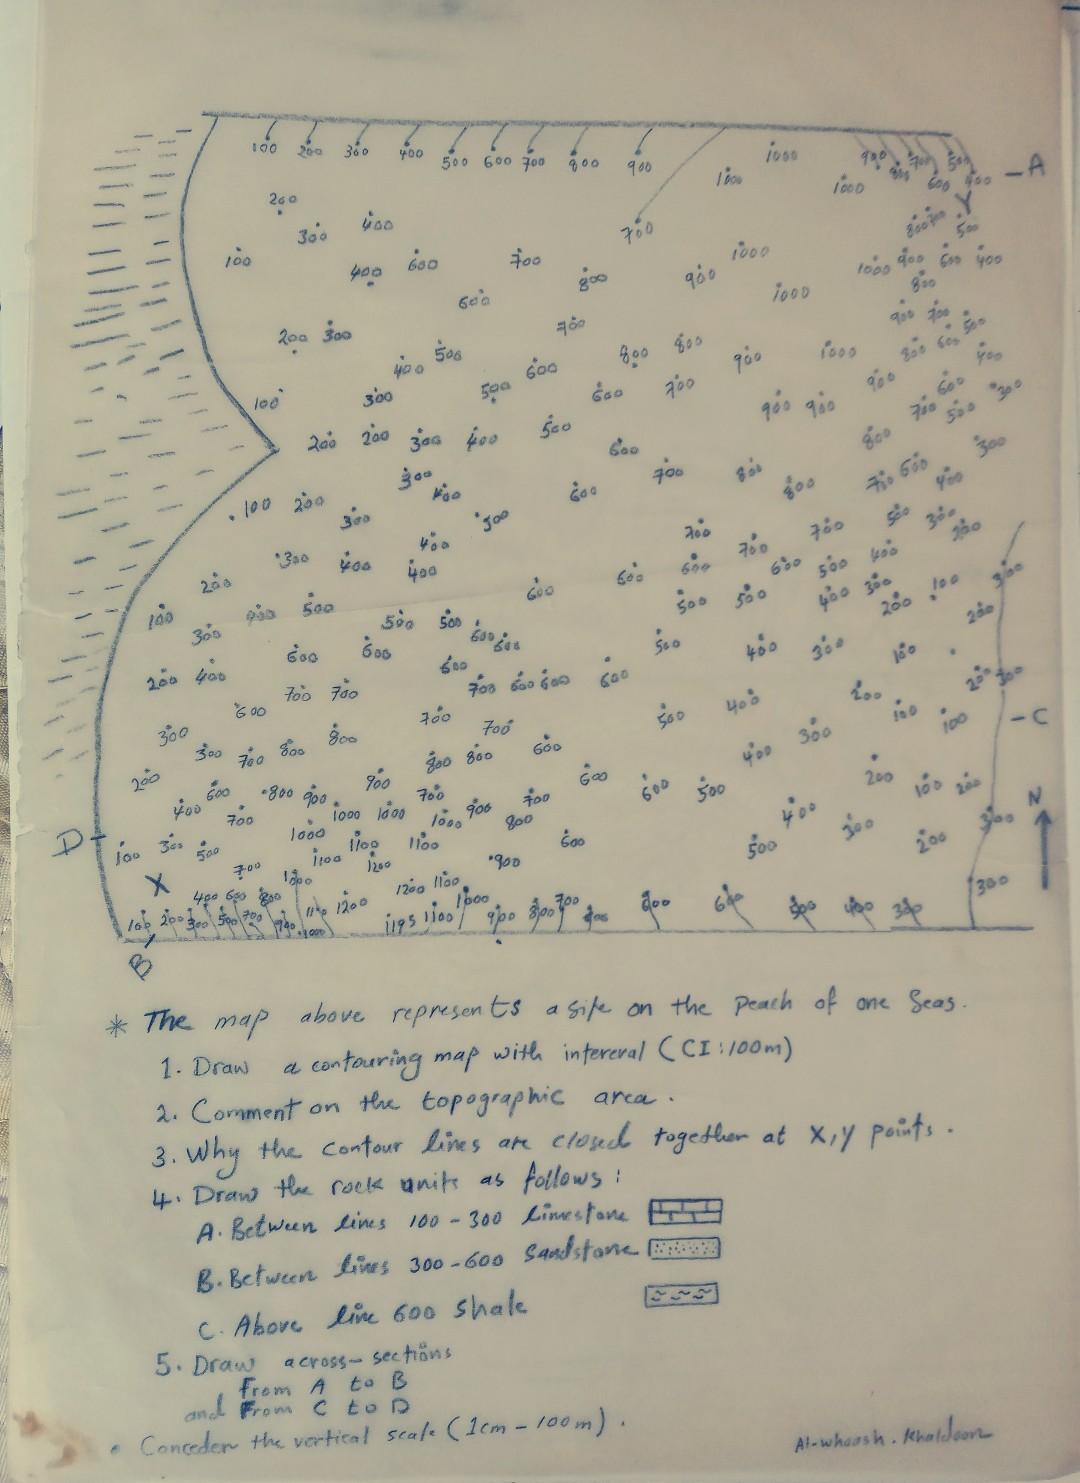 100 200 300 400 500 600 700 800 900 1000 900 800 700 500 A
1000 1000 600 400
200 Y
300 400 700 800 700 500
100 400 600 700 800 900 1000 1000 900 600 400
600 1000 800
700 900 700 500
200 300 400 500 600 800 800 900 1000 800 600 400
100 300 500 600 700 900 900 900 700 600 500 300
200 200 300 400 500 600 800 300
300 400 600 700 800 800 700 600 400
100 200 300 500 700 700 500 300 200
300 400 400 400 600 600 600 700 600 500 400 300
200 100 400 500 500 500 500 400 300 200 100 200
300 600 600 500 500 600 600 500 400 300 100
200 400 700 700 600 700 600 600 600 200 200 300
600 700 700 500 400 100 100 C
300 300 700 800 800 800 800 600 400 300
200 600 800 900 900 700 700 600 600 500 200 100 200
400 700 1000 1000 1000 900 800 400 300 300 N
D 100 300 500 1000 1100 1100 600 500 200
X 700 1100 1200 900
400 600 800 1200 1200 1100 1000 700 300
100 200 300 500 700 900 1000 1100 1195 1100 900 800 600 500 400 300
B
* The map above represents a site on the Peach of one Seas.
1. Draw a contouring map with interval (CI:100m)
2. Comment on the topographic area.
3. Why the contour lines are closed together at X,Y points.
4. Draw the rock units as follows:
A. Between lines 100-300 limestone
B. Between lines 300-600 Sandstone
C. Above line 600 Shale
5. Draw across-sections
From A to B
and From C to D
• Conceder the vertical scale (1cm-100m).
Al-whoosh. Khaldoon